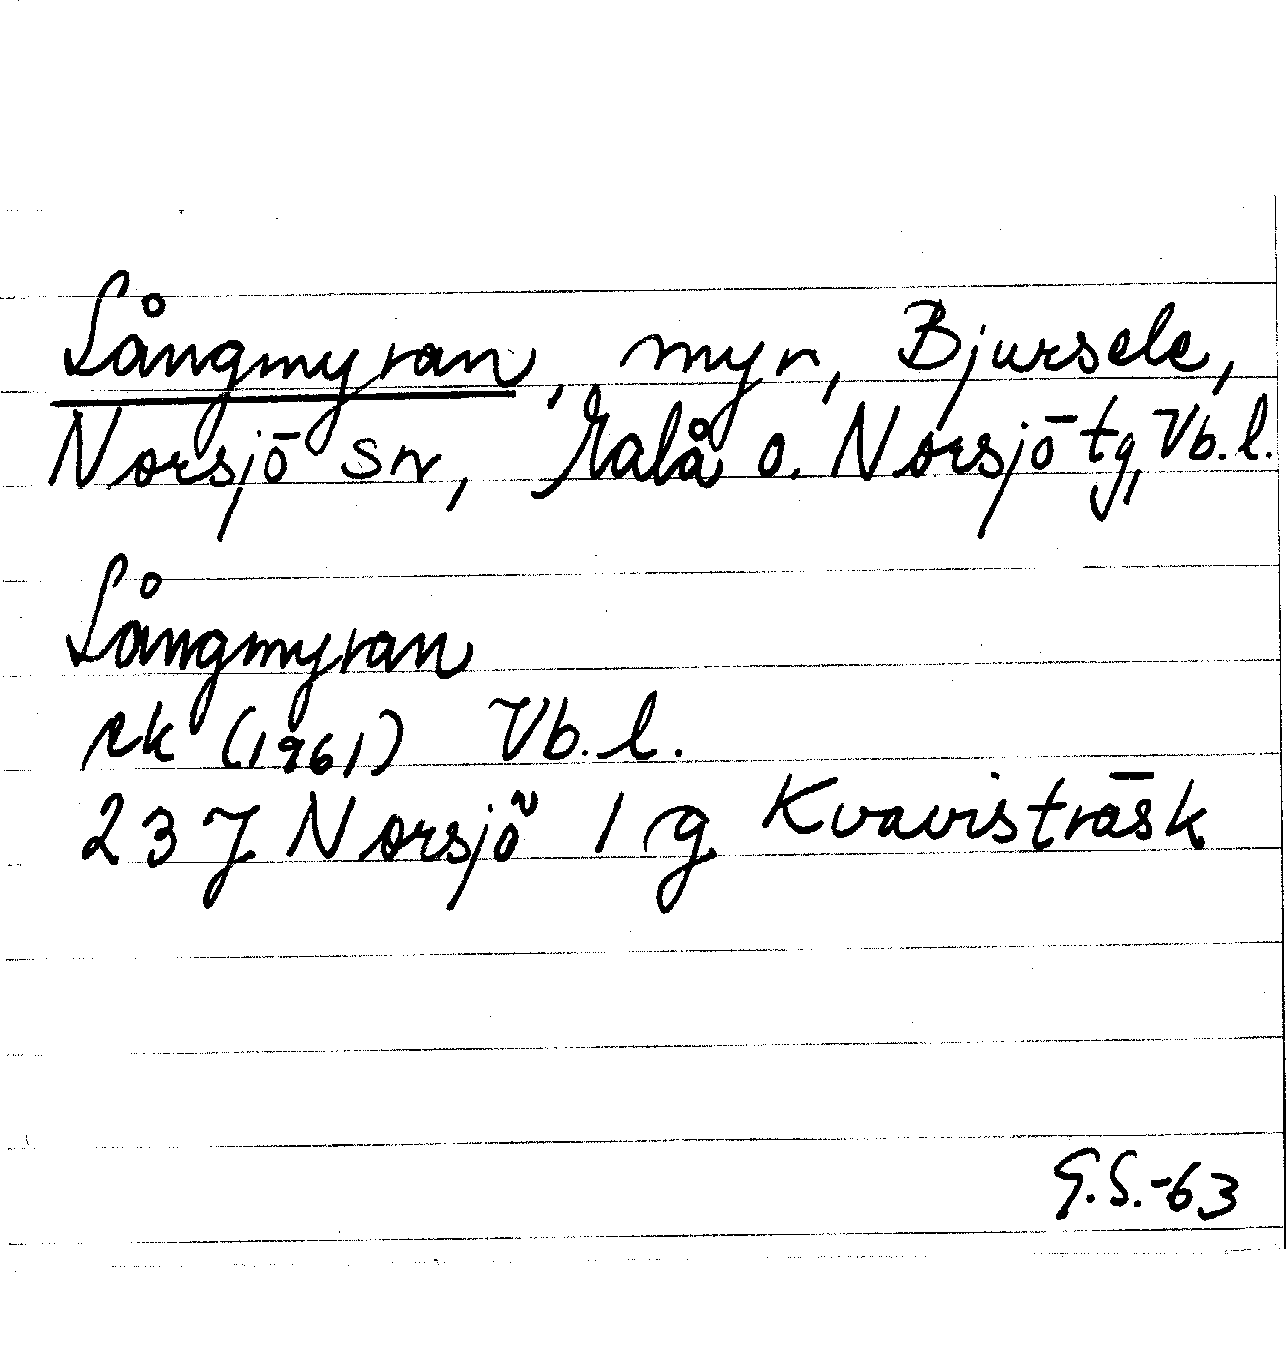 Långmyran, myr, Bjursele,
Norsjö sn, Malå o. Norsjö tg, Vb. l.
Långmyran
rk (1961) Vb. l.
23 J Norsjö 1 g Kvavisträsk
G.S.-63